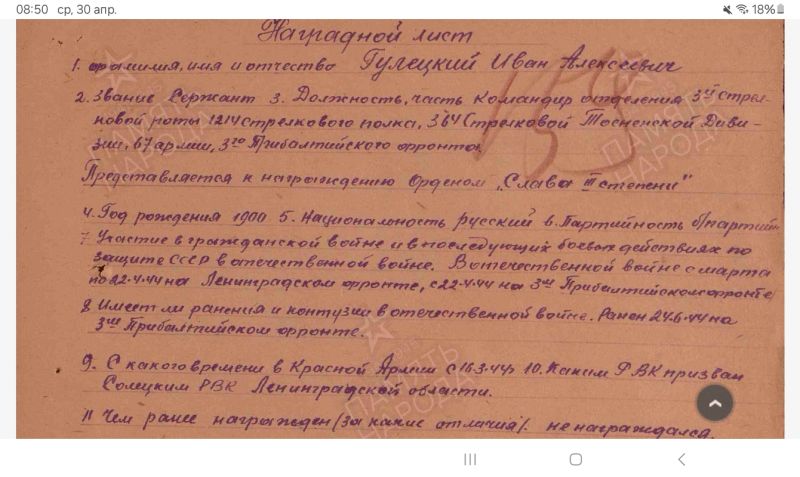 08:50 ср, 30 апр.
18%
Наградной лист
1. фамилия, имя и отчество Гулецкий Иван Алексеевич
2. Звание Сержант 3. Должность, часть Командир отделения 3й стрел-
ковой роты 1214 стрелкового полка, 364 Стрелковой Тосненской Диви-
зии, 67 армии, 3го Прибалтийского фронта.
Представляется к награждению Орденом „Слава III степени"
4. Год рождения 1900 5. Национальность русский 6. Партийность б/партийн
7. Участие в гражданской войне и в последующих боевых действиях по
защите СССР в отечественной войне. В отечественной войне с марта
по 22.4.44 на Ленинградском фронте, с 22.4.44 на 3ем Прибалтийском фронте
8. Имеет ли ранения и контузии в отечественной войне. Ранен 24.6.44 на
3ем Прибалтийском фронте.
9. С какого времени в Красной Армии с 16.3.44г 10. Каким РВК призван
Солецким РВК Ленинградской области.
11 Чем ранее награжден (за какие отличия). не награждался.
ПАМЯТЬ
НАРОДА
ПАМЯТЬ
НАРОДА
ПАМЯТЬ
НАРОДА